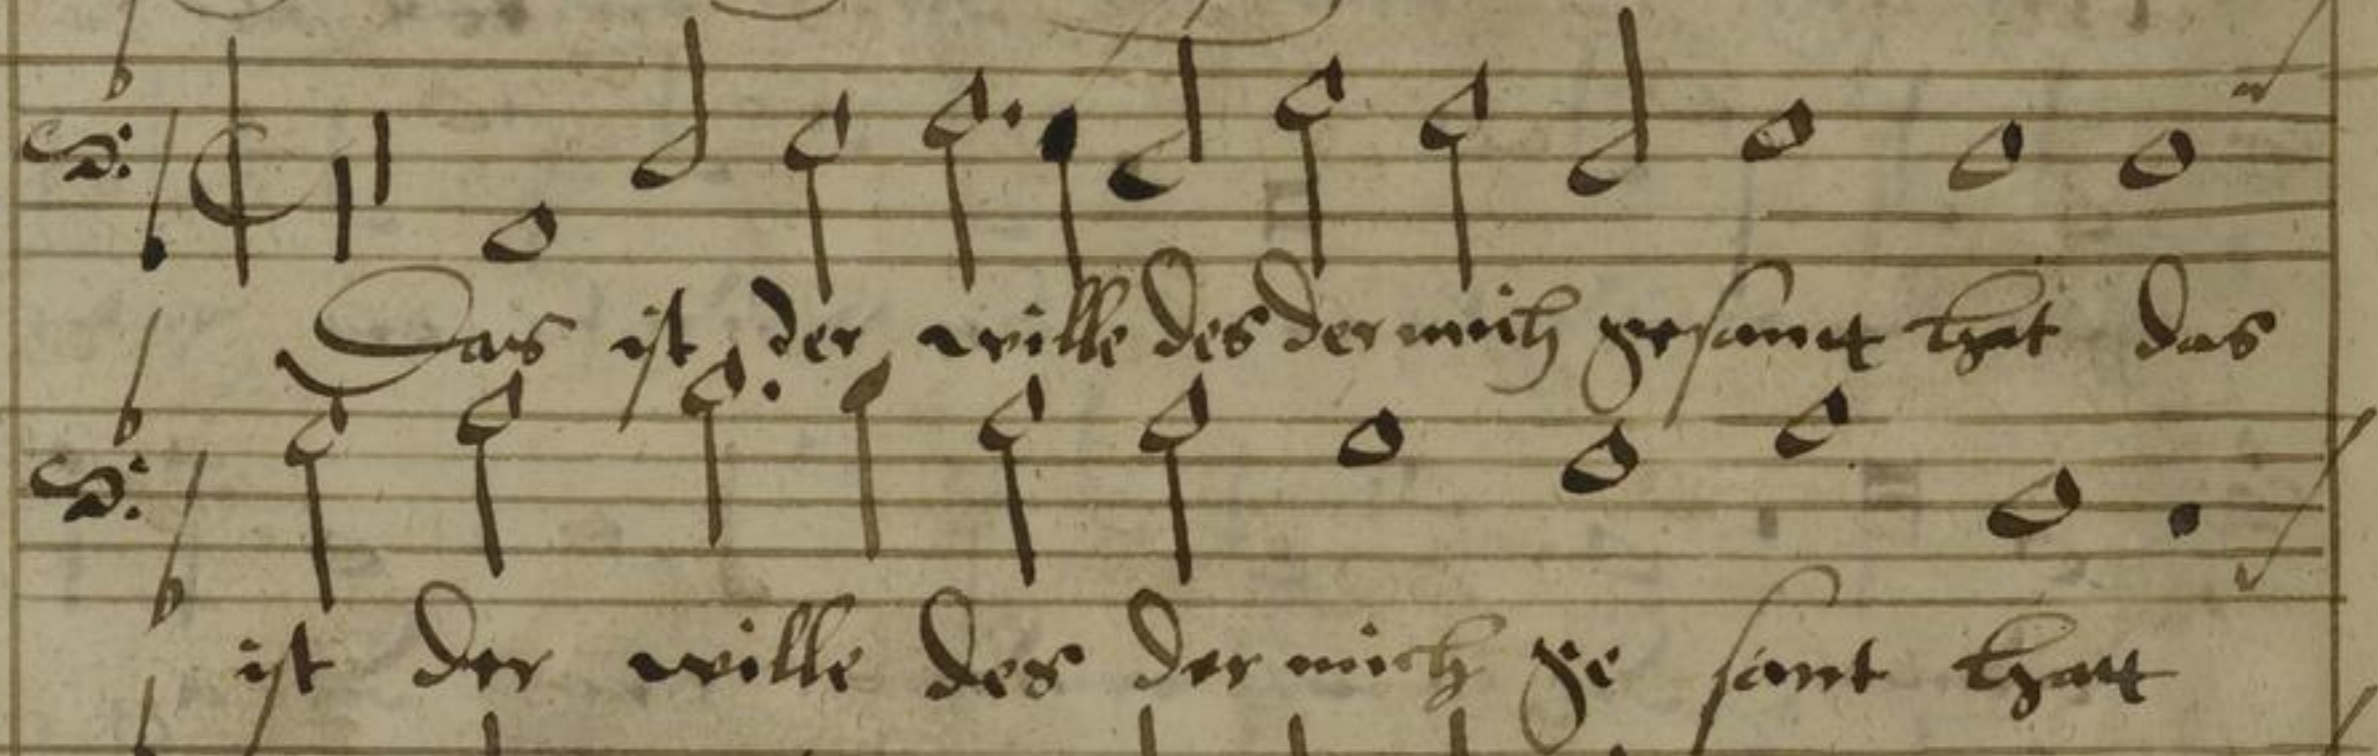 Das ist der wille des der mich gesant hat das
ist der wille des der mich ge sant hatt